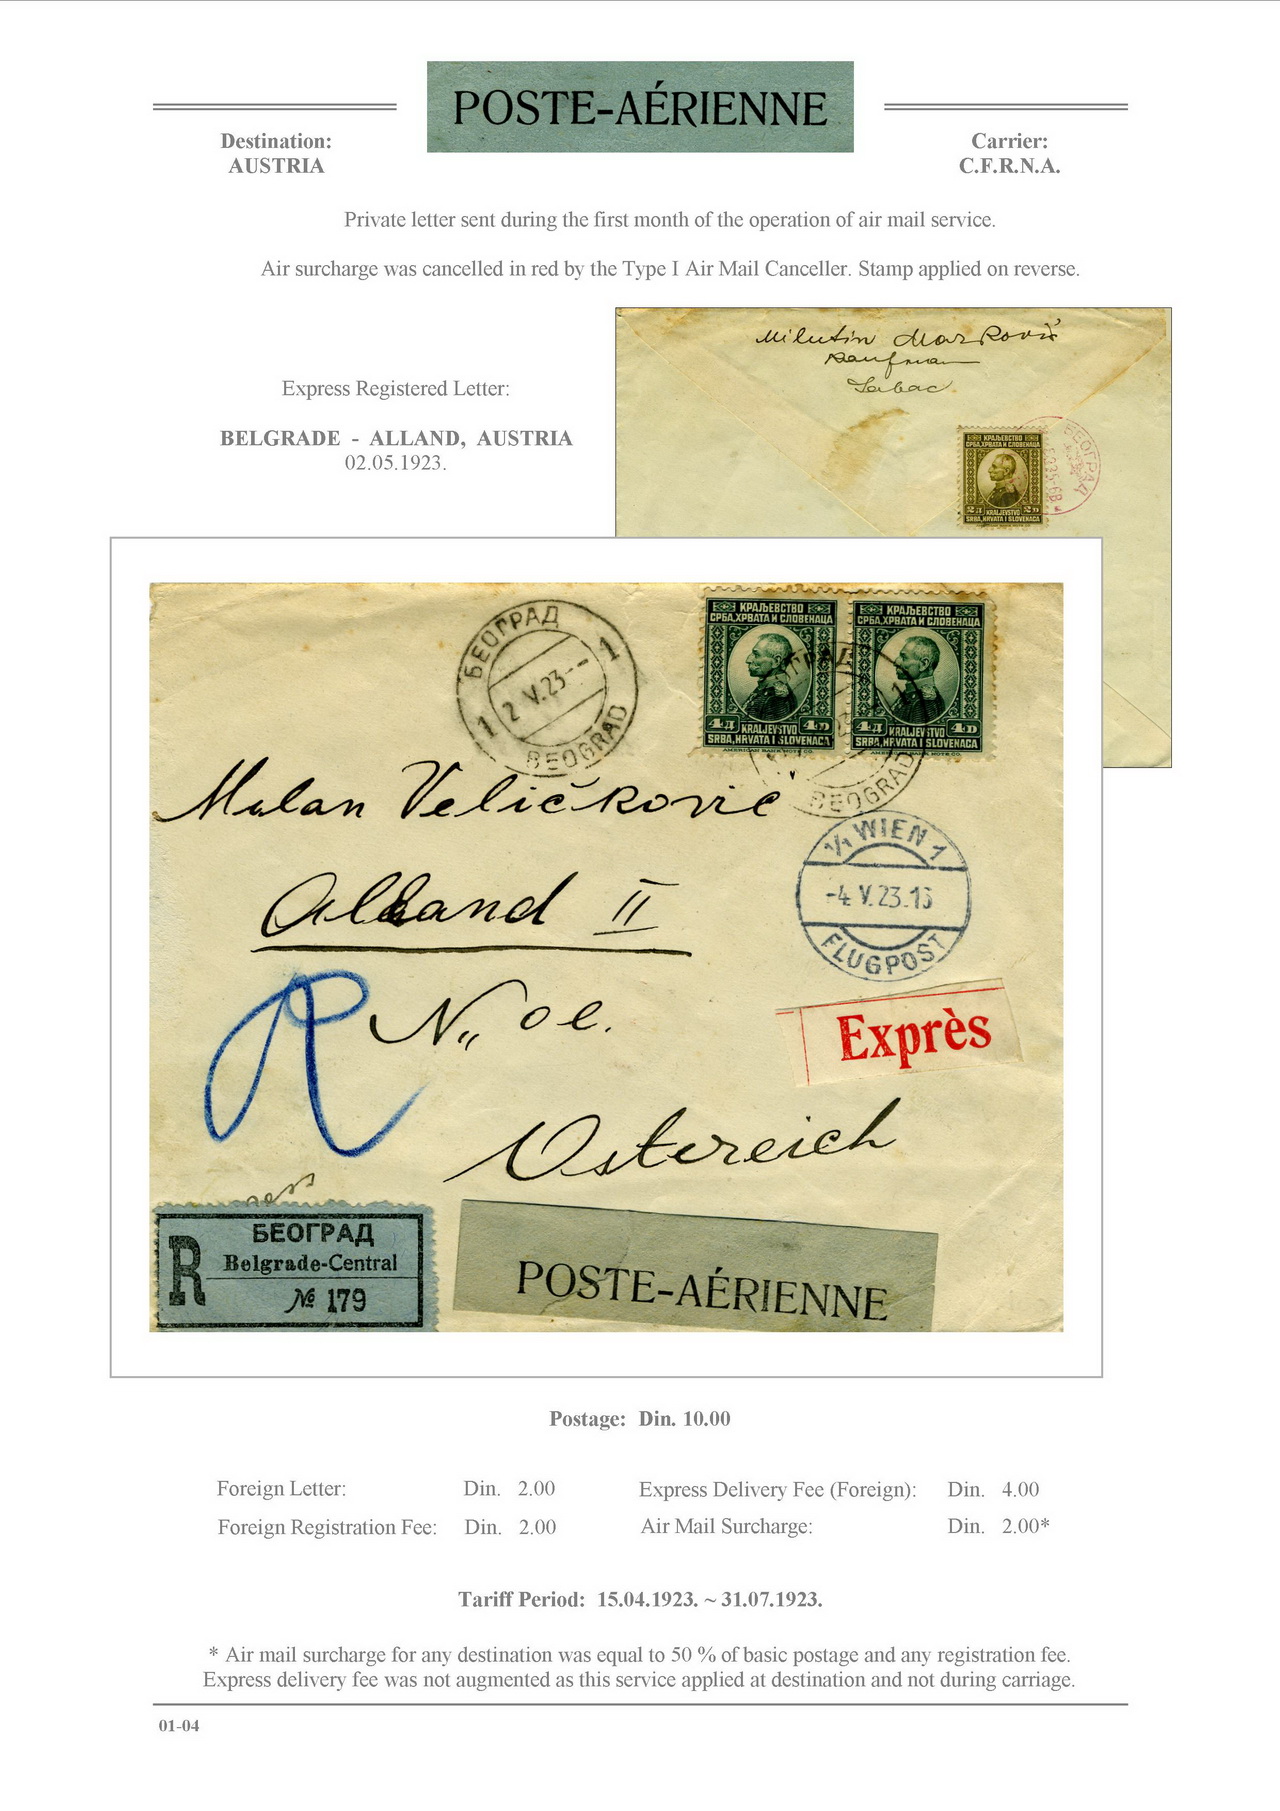 POSTE-AÉRIENNE
Destination:
AUSTRIA
Carrier:
C.F.R.N.A.
Private letter sent during the first month of the operation of air mail service.
Air surcharge was cancelled in red by the Type I Air Mail Canceller. Stamp applied on reverse.
Express Registered Letter:
BELGRADE - ALLAND, AUSTRIA
02.05.1923.
Milutin Marković
Kaufman
Sabac
КРАЉЕВСТВО
СРБА, ХРВАТА И СЛОВЕНАЦА
2Д 2D
KRALJEVSTVO
SRBA, HRVATA I SLOVENACA
БЕОГРАД
БЕОГРАД
1 1
2 V.23--
BEOGRAD
КРАЉЕВСТВО
СРБА, ХРВАТА И СЛОВЕНАЦА
4Д 4D
KRALJEVSTVO
SRBA, HRVATA I SLOVENACA
AMERICAN BANK NOTE CO.
КРАЉЕВСТВО
СРБА, ХРВАТА И СЛОВЕНАЦА
4Д 4D
KRALJEVSTVO
SRBA, HRVATA I SLOVENACA
BEOGRAD
Milan Veličković
1/1 WIEN 1
-4.V.23.
FLUGPOST
Alland II
R
N,, oe.
Exprès
Ostereich
БЕОГРАД
R Belgrade-Central
№ 179
POSTE-AÉRIENNE
Postage: Din. 10.00
Foreign Letter: Din. 2.00
Express Delivery Fee (Foreign): Din. 4.00
Foreign Registration Fee: Din. 2.00
Air Mail Surcharge: Din. 2.00*
Tariff Period: 15.04.1923. ~ 31.07.1923.
* Air mail surcharge for any destination was equal to 50 % of basic postage and any registration fee.
Express delivery fee was not augmented as this service applied at destination and not during carriage.
01-04